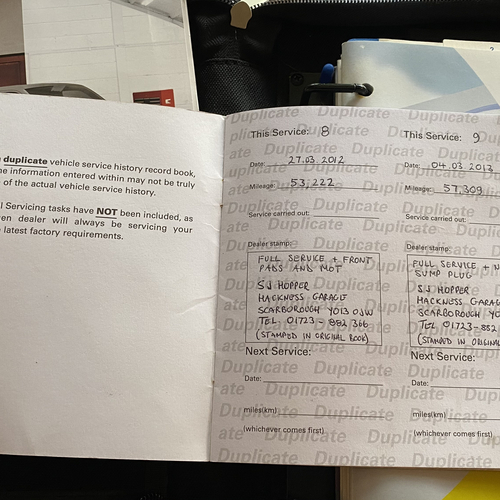 duplicate vehicle service history record book,
information entered within may not be truly
of the actual vehicle service history.
Servicing tasks have NOT been included, as
dealer will always be servicing your
latest factory requirements.
This Service: 8
Date: 27.03 2012
Mileage: 53,222
Service carried out:
Dealer stamp:
FULL SERVICE + FRONT
PADS AND MOT
SJ HOPPER
HACKNESS GARAGE
SCARBOROUGH YO13 0JW
TEL. 01723 - 882 366
(STAMPED IN ORIGINAL BOOK)
Next Service:
Date:
miles(km)
(whichever comes first)
This Service: 9
Date: 04.03.2013
Mileage: 57,309
Service carried out:
Dealer stamp:
FULL SERVICE +
SUMP PLUG
SJ HOPPER
HACKNESS GARAG
SCARBOROUGH YO13
TEL 01723-882
(STAMPED IN ORIGINAL
Next Service:
Date:
miles(km)
(whichever comes first)
Duplicate